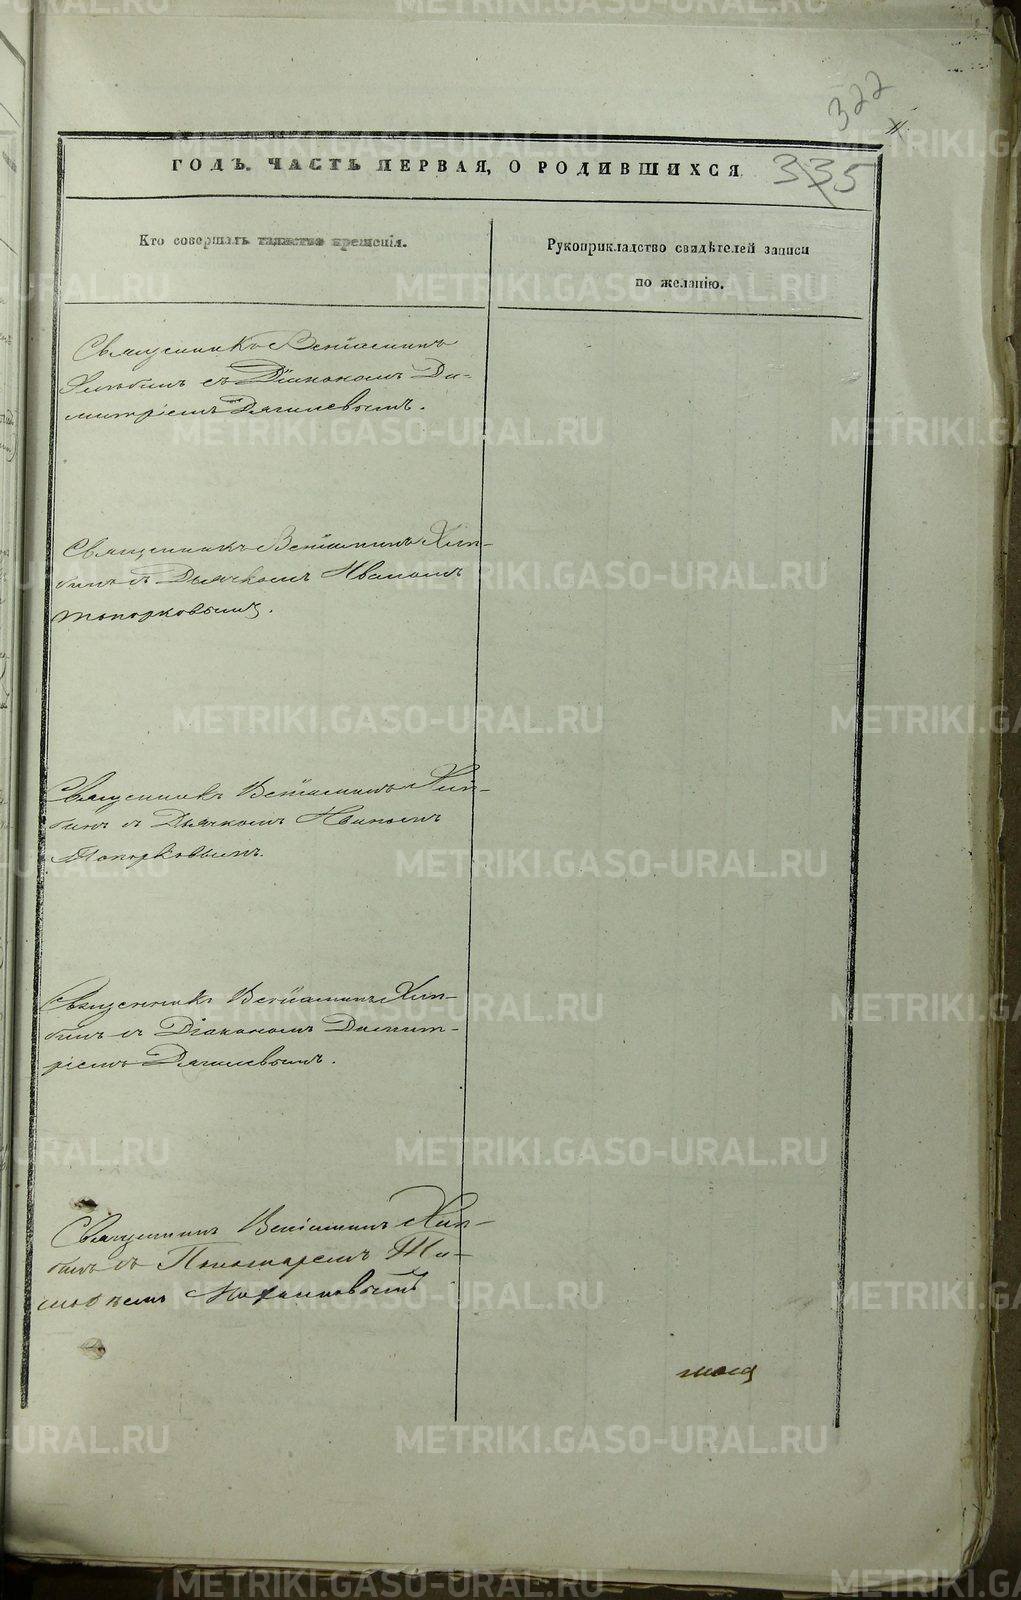 METRIKI.GASO-URAL.RU
322
ГОДЪ. ЧАСТЬ ПЕРВАЯ, О РОДИВШИХСЯ
335
Кто совершалъ таинство крещенія.
Рукоприкладство свидѣтелей записи
по желанію.
Священникъ Веніаминъ
Хлѣбинъ съ Діакономъ Ди-
митріемъ Дягилевымъ.
Священникъ Веніаминъ Хлѣ-
бинъ съ Дьячкомъ Иваномъ
Топорковымъ.
Священникъ Веніаминъ Хлѣ-
бинъ съ Дьячкомъ Иваномъ
Топорковымъ.
Священникъ Веніаминъ Хлѣ-
бинъ съ Діакономъ Димит-
ріемъ Дягилевымъ.
Священникъ Веніаминъ Хлѣ-
бинъ съ Пономаремъ Ти-
мофѣемъ